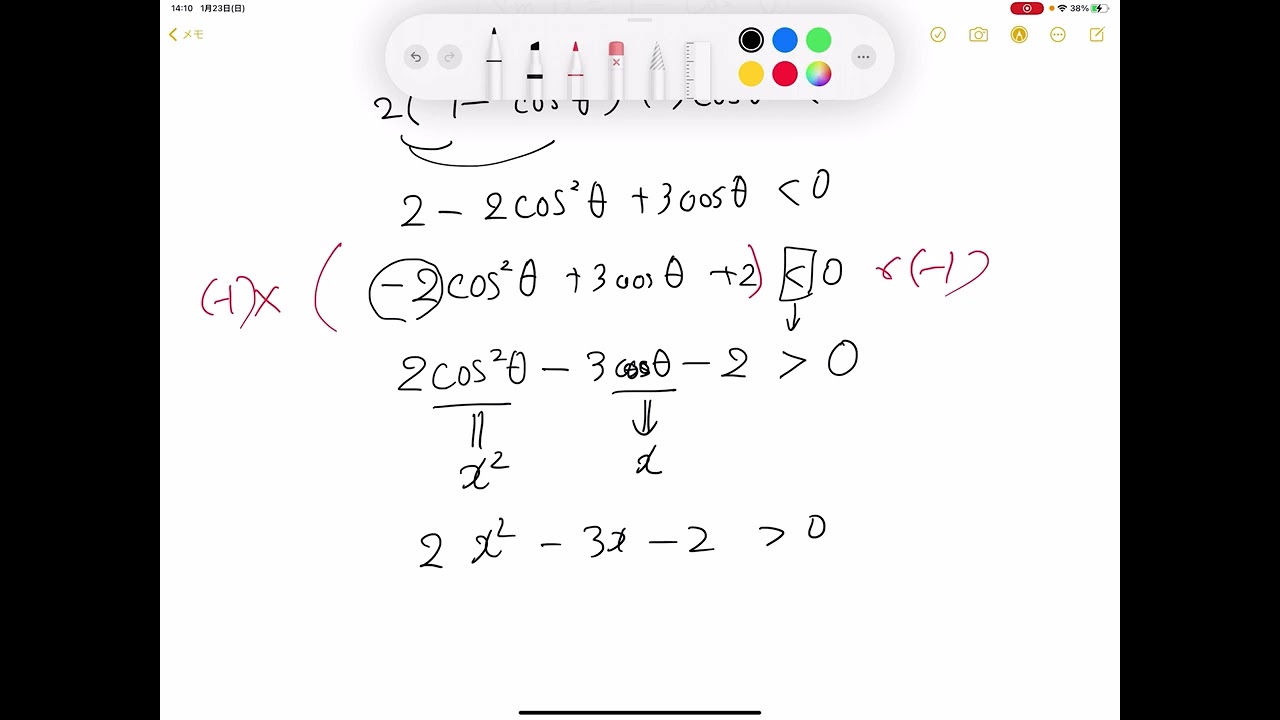 14:10 1月23日(日)
38%
メモ
2(1- cosθ)
2 - 2cos²θ +3cosθ <0
(-1)× ( -2cos²θ +3cosθ +2) < 0 ×(-1)
2cos²θ - 3cosθ - 2 > 0
x² x
2x² - 3x - 2 > 0